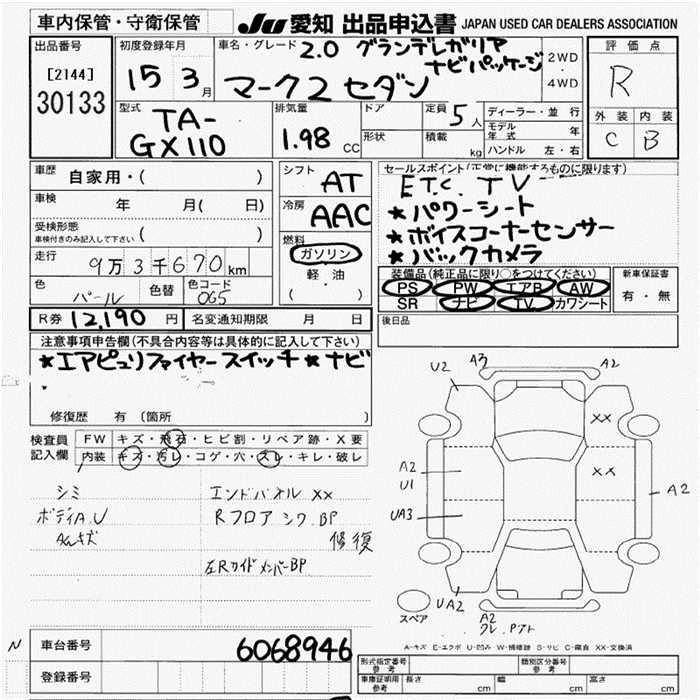 車内保管・守衛保管
JU 愛知 出品申込書 JAPAN USED CAR DEALERS ASSOCIATION
出品番号
[2144]
30133
初度登録年月
15 3月
車名・グレード
2.0 グランデレガリア
ナビパッケージ
マーク2 セダン
2WD
・
4WD
評価点
R
外装 内装
C B
型式
TA-
GX110
排気量
1.98 CC
ドア
形状
定員 5人
積載 kg
ディーラー・並行
モデル年式 年
ハンドル 左・右
車歴
自家用・( )
車検 年 月( 日)
受検形態
車検付きのみ記入して下さい ( )
走行
9万3千670km
色
パール
色替
色コード
065
シフト
AT
冷房
AAC
燃料
ガソリン
軽・油
( )
セールスポイント(正常に機能するものに限ります)
ETC. TV
★パワーシート
★ボイスコーナーセンサー
★バックカメラ
装備品(純正品に限り○をつけてください)
PS PW エアB AW
SR ナビ TV カワシート
新車保証書
有・無
R券 12,190円 名変通知期限 月 日
後日品
注意事項申告欄(不具合内容等は具体的に記入して下さい)
★エアピュリファイヤースイッチ ★ナビ
修復歴 有(箇所 )
検査員
記入欄
FW キズ・飛石・ヒビ割・リペア跡・X要
内装 キズ・汚レ・コゲ・穴・スレ・キレ・破レ
シミ
ボディA.U
AWキズ
エンドパネル XX
Rフロア シワ.BP
修復
左RサイドメンバーBP
U2 A3 A2
XX
XX
A2
U1
UA3
A2
UA2
A2
スペア
A-キズ E-エクボ U-凹み W-補修跡 S-サビ C-腐食 XX-交換済
N
車台番号
6068946
登録番号
型式指定番号 参考
類別区分番号 参考
車庫証明用 参考
長さ cm 幅 cm 高さ cm